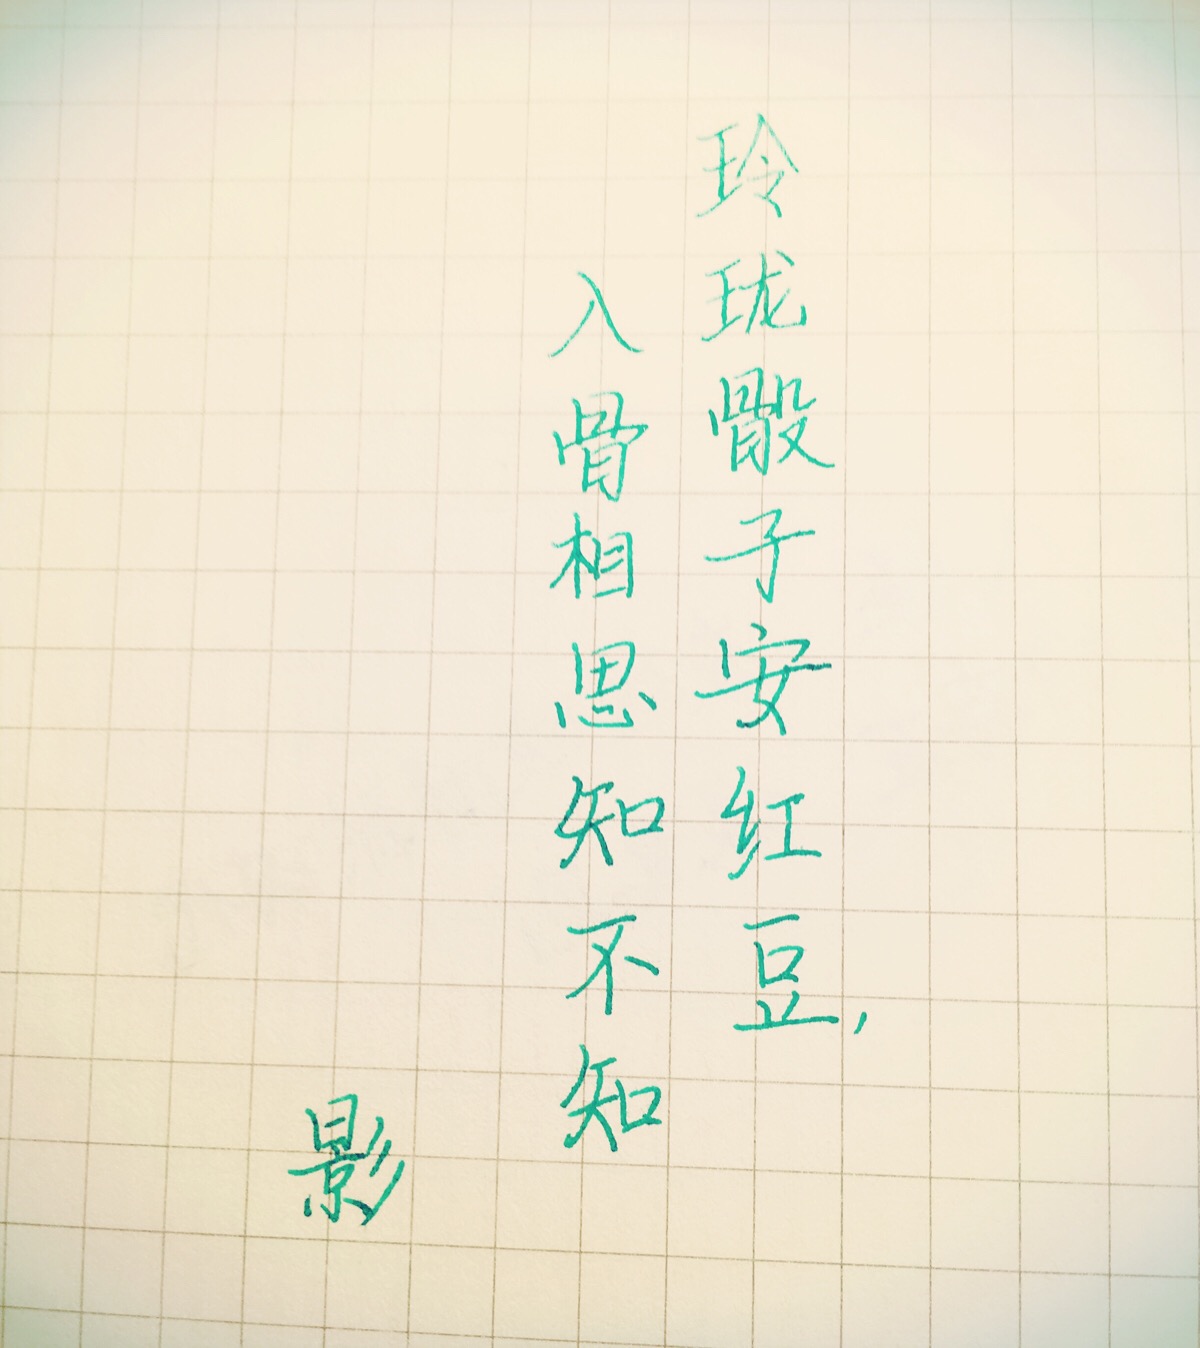 玲珑骰子安红豆,
入骨相思知不知
影